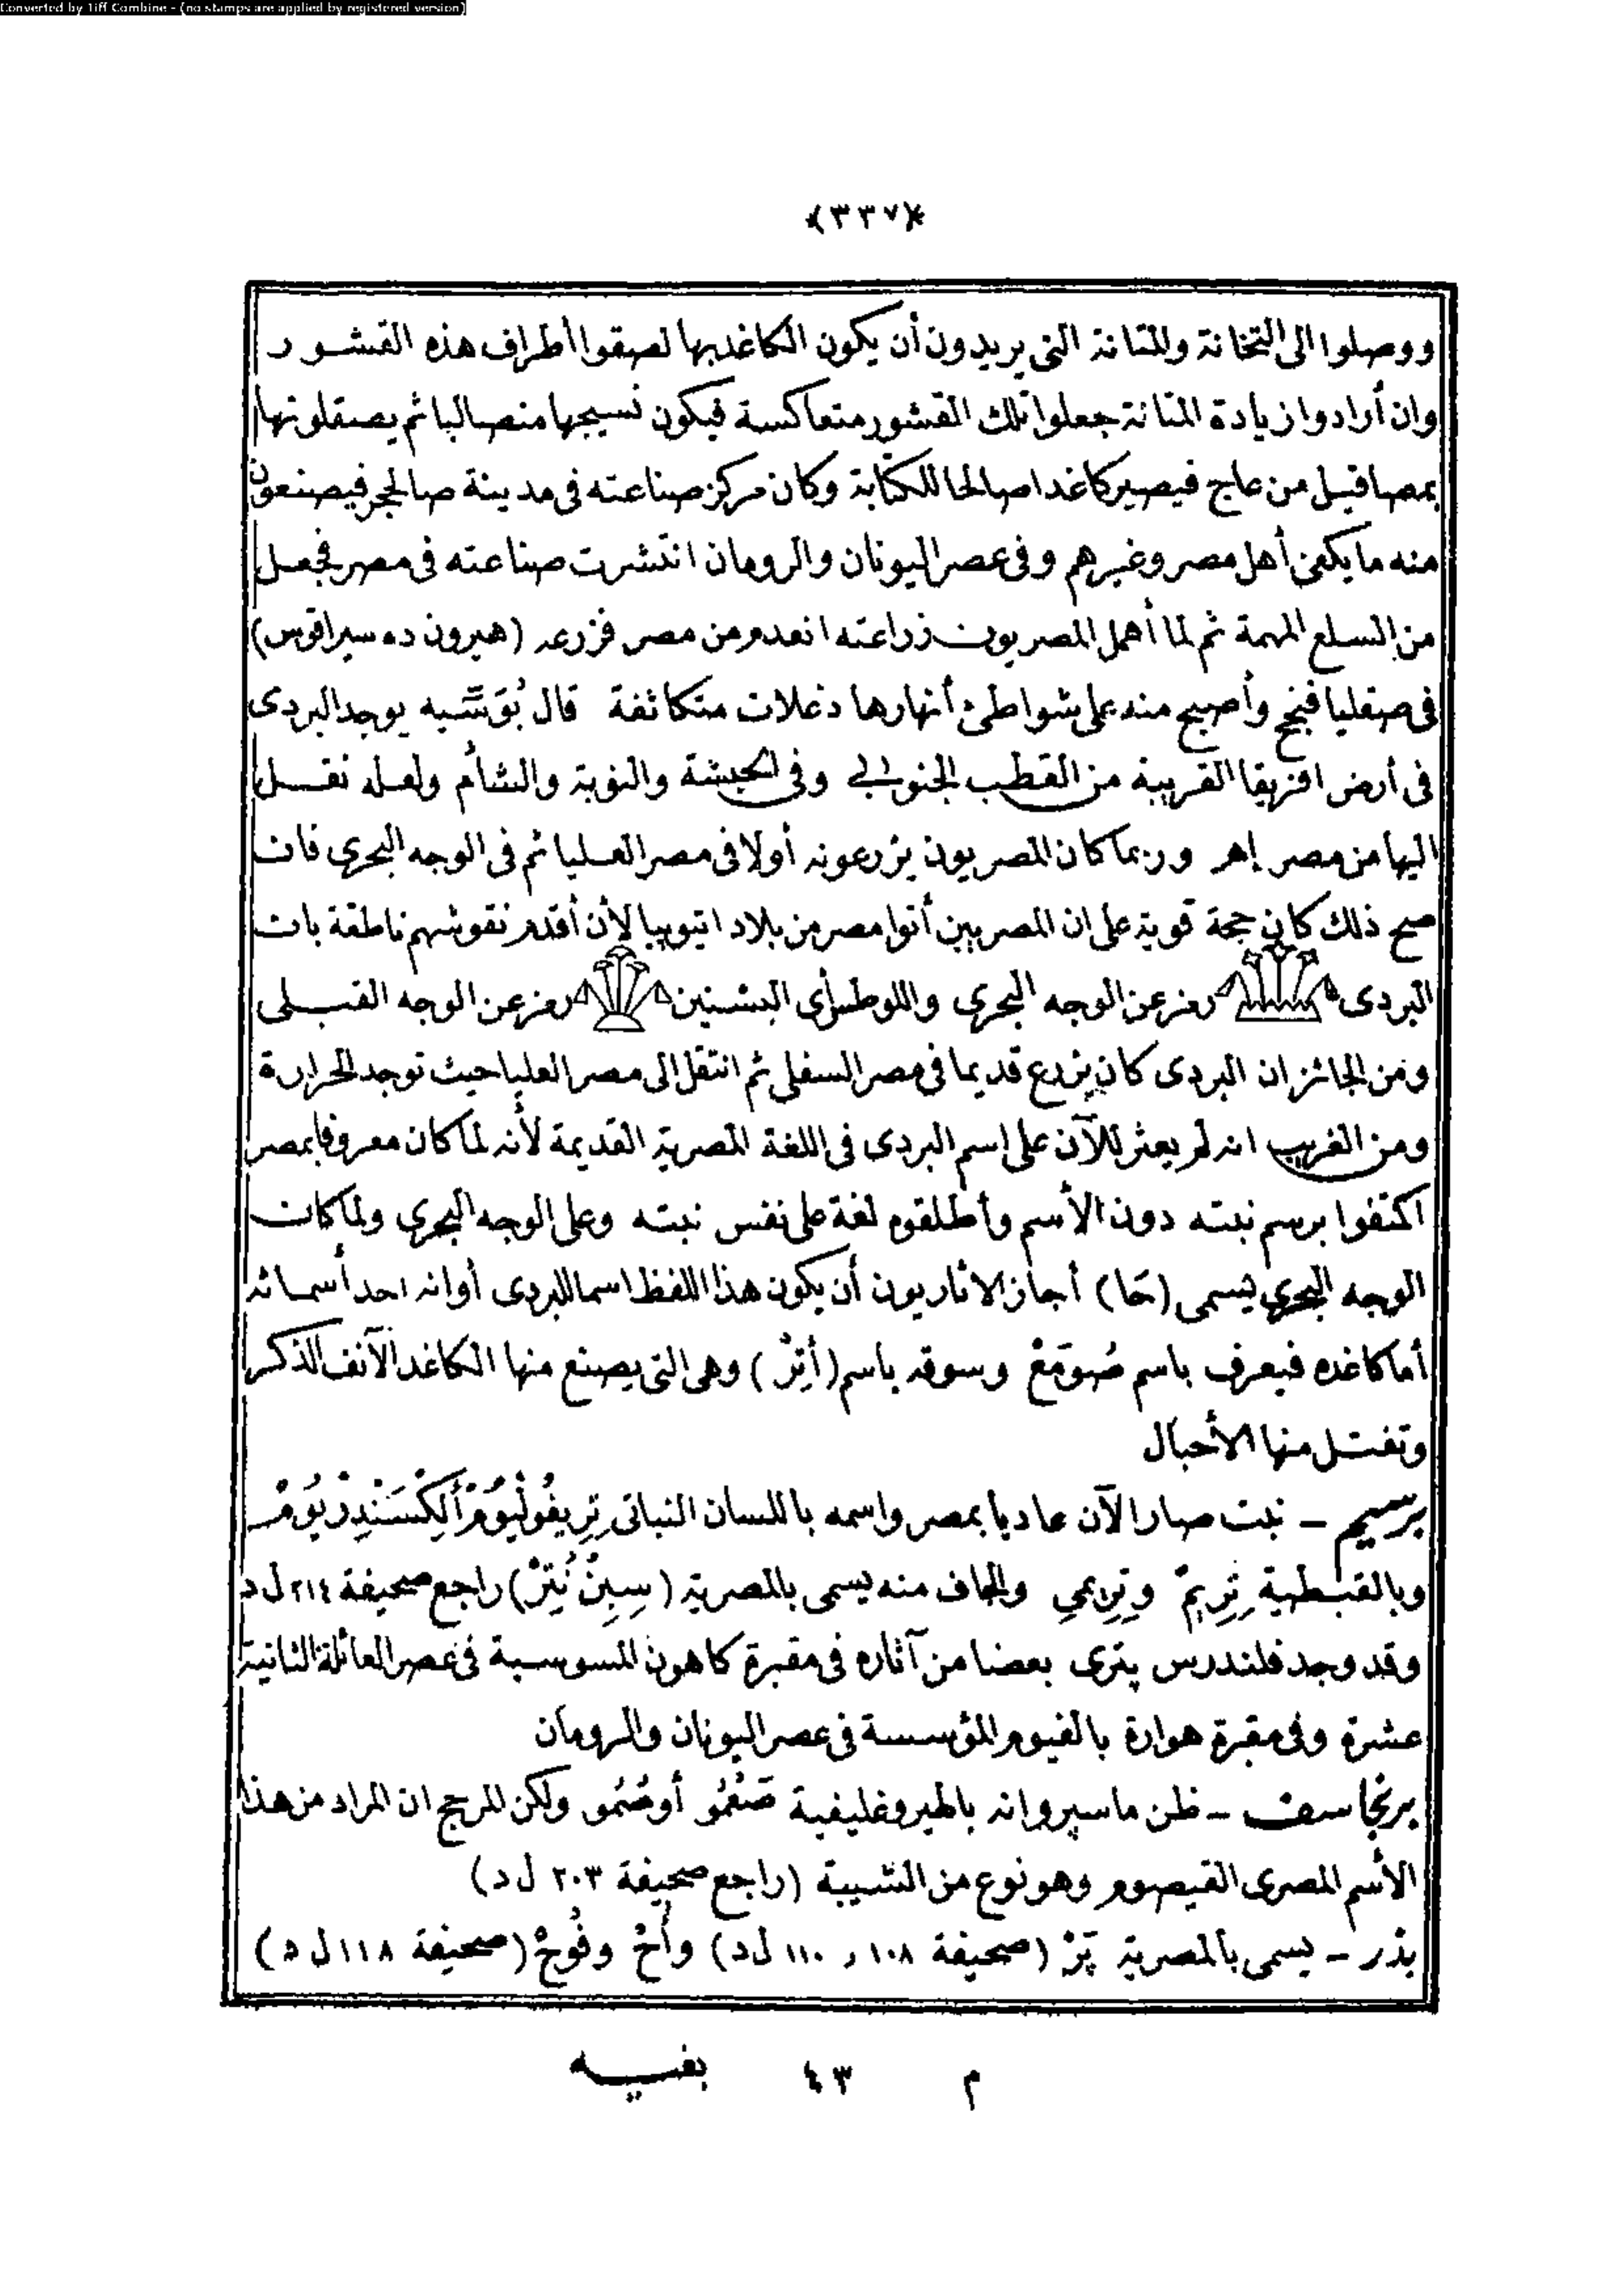 Converted by Tiff Combine - (no stamps are applied by registered version)
﴿٣٣٧﴾
ووصلوا الى التخانة والمتانة التى يريدون أن يكون الكاغد بها لصقوا أطراف هذه القشور
وان أرادوا زيادة المتانة جعلوا تلك القشور متعاكسة فيكون نسيجها منصالبا ثم يصقلونها
بمصاقيل من عاج فيصير كاغدا صالحا للكتابة وكان مركز صناعته فى مدينة صا الحجر فيصنعون
منه ما يكفى أهل مصر وغيرهم وفى عصر اليونان والرومان انتشرت صناعته فى مصر فجعل
من السلع المهمة ثم لما أهمل المصريون زراعته انعدم من مصر فزرعه (هيرون ده سيراقوس)
فى صقليا فنجح وأصبح منه على شواطئ أنهارها دغلات متكاثفة قال بُوَنسّيه يوجد البردى
فى أرض افريقا القريبة من القطب الجنوبى وفى الحبشة والنوبة والشأم ولعله نقل
اليها من مصر إهر وربما كان المصريون يزرعونه أولا فى مصر العليا ثم فى الوجه البحرى فان
صح ذلك كان حجة قوية على ان المصريين أتوا مصر من بلاد اتيوبيا لأن أقدم نقوشهم ناطقة بان
البردى رمز عن الوجه البحرى واللوطس أى البشنين رمز عن الوجه القبلى
ومن الجائز ان البردى كان يزرع قديما فى مصر السفلى ثم انتقل الى مصر العليا حيث توجد الحرارة
ومن الغريب انه لم يعثر للآن على اسم البردى فى اللغة المصرية القديمة لأنه لما كان معروفا بمصر
اكتفوا برسم نبته دون الأسم وأطلقوه لغة على نفس نبته وعلى الوجه البحرى ولما كان
الوجه البحرى يسمى (حَا) أجاز الاثاريون أن يكون هذا اللفظ اسما للبردى أو انه احد أسمائه
أما كاغده فيعرف باسم صُومَعْ وسوقه باسم (أَتِرْ) وهى التى يصنع منها الكاغد الآنف الذكر
وتفتل منها الأحبال
برسيم – نبت صار الآن عاديا بمصر واسمه باللسان النباتى تِرِيفُولْيُومْ أَلِكْسَنْدِرْيُومْ
وبالقبطية تِرِيمْ وتِرِيمِى والجاف منه يسمى بالمصرية (سِبِنْ نُتِرْ) راجع صحيفة ٢١٤ ل د
وقد وجد فلندرس پترى بعضا من آثاره فى مقبرة كاهون المسوسسة فى عصر العائلة الثانية
عشرة وفى مقبرة هوارة بالفيوم المؤسسة فى عصر اليونان والرومان
برنجاسف – ظن ماسپرو انه بالهيروغليفية صَعْمُو أو صُمُو ولكن المرجح ان المراد من هذا
الأسم المصرى القيصوم وهو نوع من الشيبة (راجع صحيفة ٢٠٣ ل د)
بذر – يسمى بالمصرية پَرْ (صحيفة ١٠٨ ر ١١٠ ل د) وأَخْ وفُوخْ (صحيفة ١١٨ ل د)
م ٤٣ بغيه